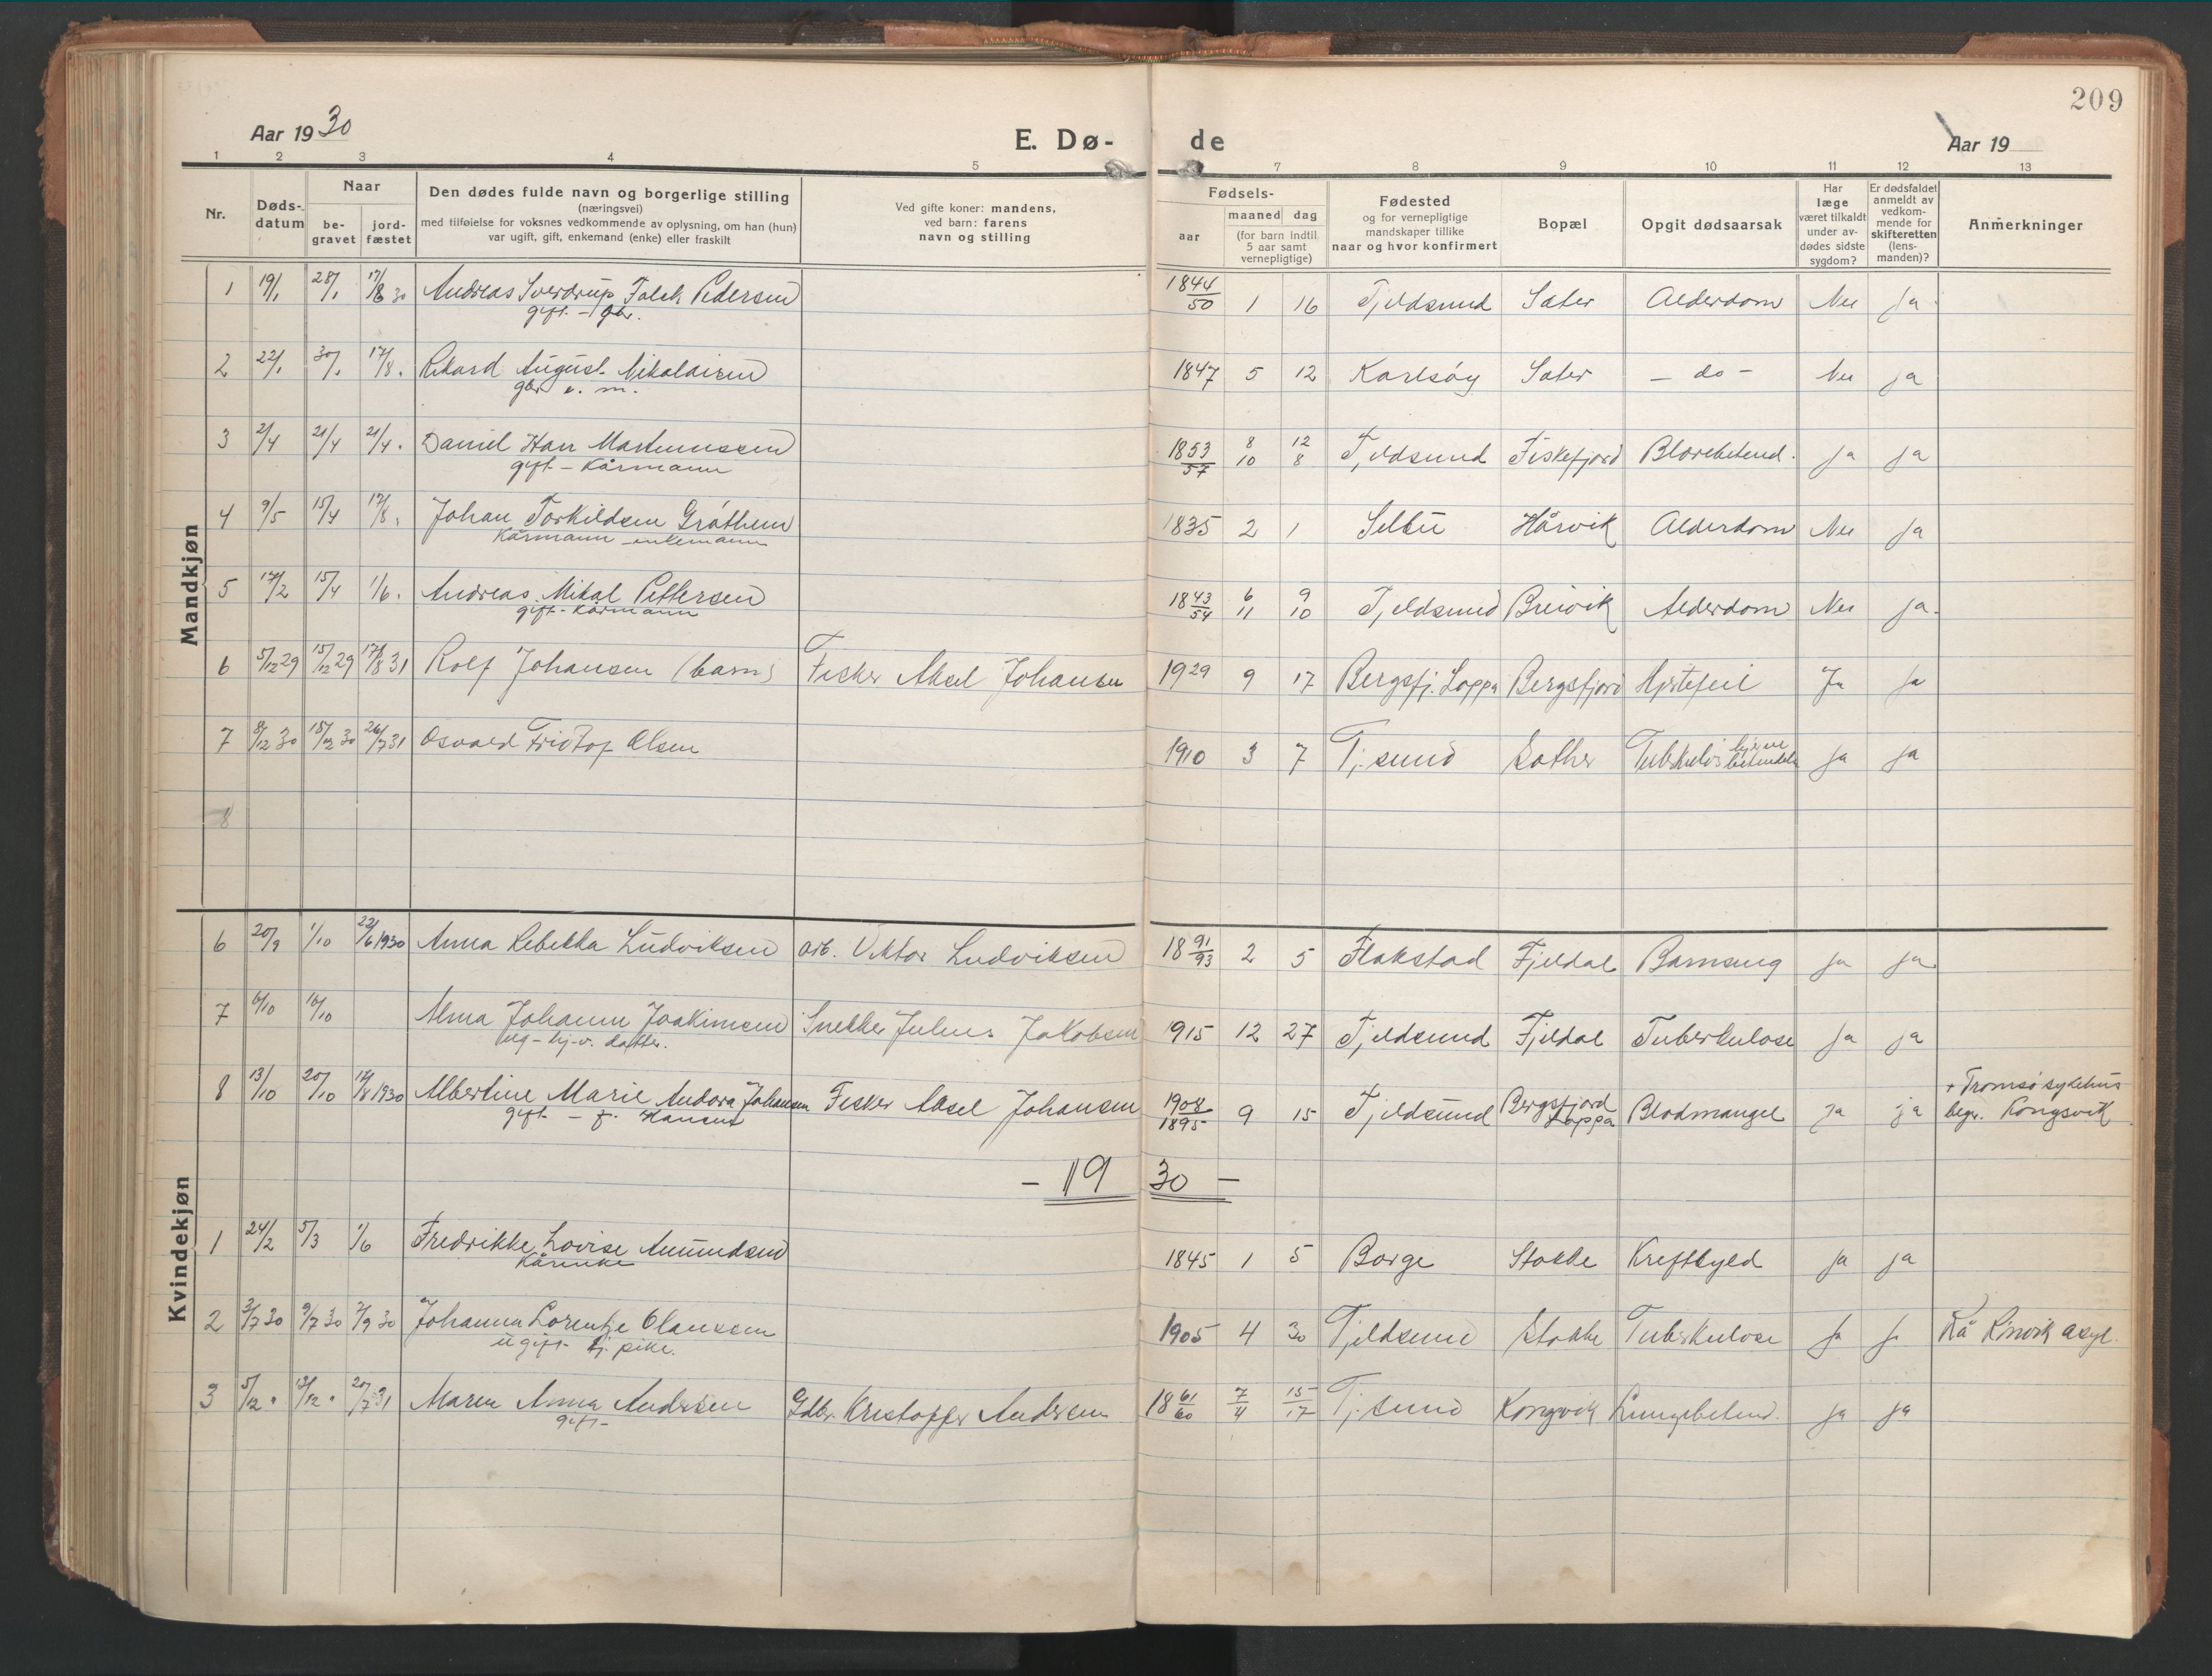 209
Aar 1930 E. Dø- de Aar 19
1 2 3 4 5 7 8 9 10 11 12 13
Nr. Døds-datum Naar be-gravet jord-fæstet Den dødes fulde navn og borgerlige stilling (næringsvei) med tilføielse for voksnes vedkommende av oplysning, om han (hun) var ugift, gift, enkemand (enke) eller fraskilt Ved gifte koner: mandens, ved barn: farens navn og stilling Fødsels- aar maaned dag (for barn indtil 5 aar samt vernepligtige) Fødested og for vernepligtige mandskaper tillike naar og hvor konfirmert Bopæl Opgit dødsaarsak Har læge været tilkaldt under av-dødes sidste sygdom? Er dødsfaldet anmeldt av vedkom-mende for skifteretten (lens-manden)? Anmerkninger
Mandkjøn
1 19/1 28/1 17/8 30 Andreas Sverdrup Falch Pedersen 1844/50 1 16 Tjeldsund Sæter Alderdom Nei Ja
gift - gbr.
2 22/1 30/1 17/8. Rikard August Nikolaisen 1847 5 12 Karlsøy Sæter - do - Nei ja
gbr e. m.
3 2/4 21/4 21/4. Daniel Han Martinussen 1853/57 8/10 12/8 Tjeldsund Fiskefjord Blærebetend. ja ja
gift - Kårmann
4 9/5 15/4 17/8. Johan Torkildsen Gróthem 1835 2 1 Selbu Hårvik Alderdom Nei Ja
Kårmann enkemann
5 17/2 15/4 1/6. Andreas Mikal Pettersen 1843/54 6/11 9/10 Tjeldsund Breivik Alderdom Nei ja.
gift - Kårmann
6 5/12 29 15/12 29 17/8 31 Rolf Johansen (barn) Fisker Aksel Johansen 1929 9 17 Bergsfj. Loppa Bergsfjord Hjertefeil Ja ja
7 8/12 30 18/12 30 26/7 31 Osvald Fridtjof Olsen 1910 3 7 Tj.sund Sæther Tuberkuløs hjernebetendels ja ja
8
Kvindekjøn
6 20/9 1/10 22/6 1930 Anna Rebekka Ludviksen arb. Viktor Ludviksen 1891/93 2 5 Flakstad Fjeldal Barnseng ja ja
7 6/10 16/10 Alma Johanne Joakimsen Snekker Julius Jakobsen 1915 12 27 Tjeldsund Fjeldal Tuberkulose ja ja
ug - hj.v. datter.
8 13/10 20/10 17/8 1930 Albertine Marie Andora Johansen Fisker Aksel Johansen 1908/1895 9 15 Tjeldsund Bergsfjord Loppa Blodmangel ja ja + Tromsø sykehus
gift - f. Hansen begr. Kongsvik
- 19 30 -
1 24/2 5/3 1/6 Fredrikke Lovise Amundsen 1845 1 5 Borge Stokke Kreftbyld ja ja
Kårenke
2 3/7 30 9/7 30 7/9 30 Johanna Lorentze Olaussen 1905 4 30 Tjeldsund Stokke Tuberkulose ja ja
ugift hj. pike.
3 5/12 . 13/12 . 20/7 31 Maren Anna Andersen Gdbr. Kristoffer Andersen 1861/60 7/4 15/17 Tj.sund Kongsvik Lungebetend. ja ja
gift